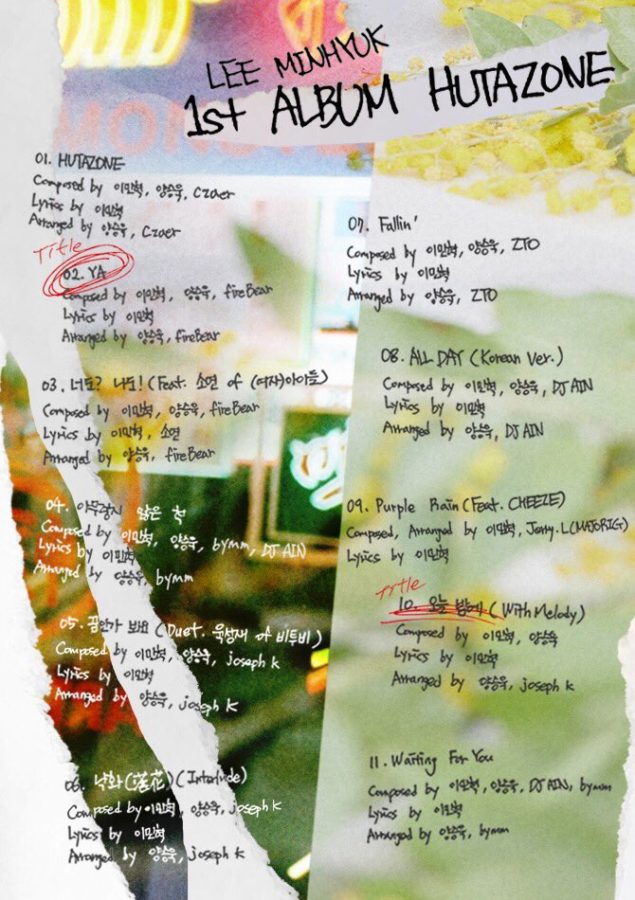 LEE MINHYUK
1st ALBUM HUTAZONE
01. HUTAZONE
Composed by 이민혁, 양승욱, Czaer
Lyrics by 이민혁
Arranged by 양승욱, Czaer
Title
02. YA
Composed by 이민혁, 양승욱, fireBear
Lyrics by 이민혁
Arranged by 양승욱, fireBear
03. 너도? 나도! (Feat. 소연 of (여자)아이들)
Composed by 이민혁, 양승욱, fireBear
Lyrics by 이민혁, 소연
Arranged by 양승욱, fireBear
04. 아무렇지 않은 척
Composed by 이민혁, 양승욱, bymm, DJ AIN
Lyrics by 이민혁
Arranged by 양승욱, bymm
05. 꿈인가 보요 (Duet. 육성재 of 비투비)
Composed by 이민혁, 양승욱, joseph k
Lyrics by 이민혁
Arranged by 양승욱, joseph k
06. 낙화(落花)(Interlude)
Composed by 이민혁, 양승욱, joseph k
Lyrics by 이민혁
Arranged by 양승욱, joseph k
07. Fallin'
Composed by 이민혁, 양승욱, ZTO
Lyrics by 이민혁
Arranged by 양승욱, ZTO
08. ALL DAY (Korean Ver.)
Composed by 이민혁, 양승욱, DJ AIN
Lyrics by 이민혁
Arranged by 양승욱, DJ AIN
09. Purple Rain (Feat. CHEEZE)
Composed, Arranged by 이민혁, Jerry.L(MAJORIG)
Lyrics by 이민혁
Title
10. 오늘 밤에 (With Melody)
Composed by 이민혁, 양승욱
Lyrics by 이민혁
Arranged by 양승욱, joseph k
11. Waiting For You
Composed by 이민혁, 양승욱, DJ AIN, bymm
Lyrics by 이민혁
Arranged by 양승욱, bymm